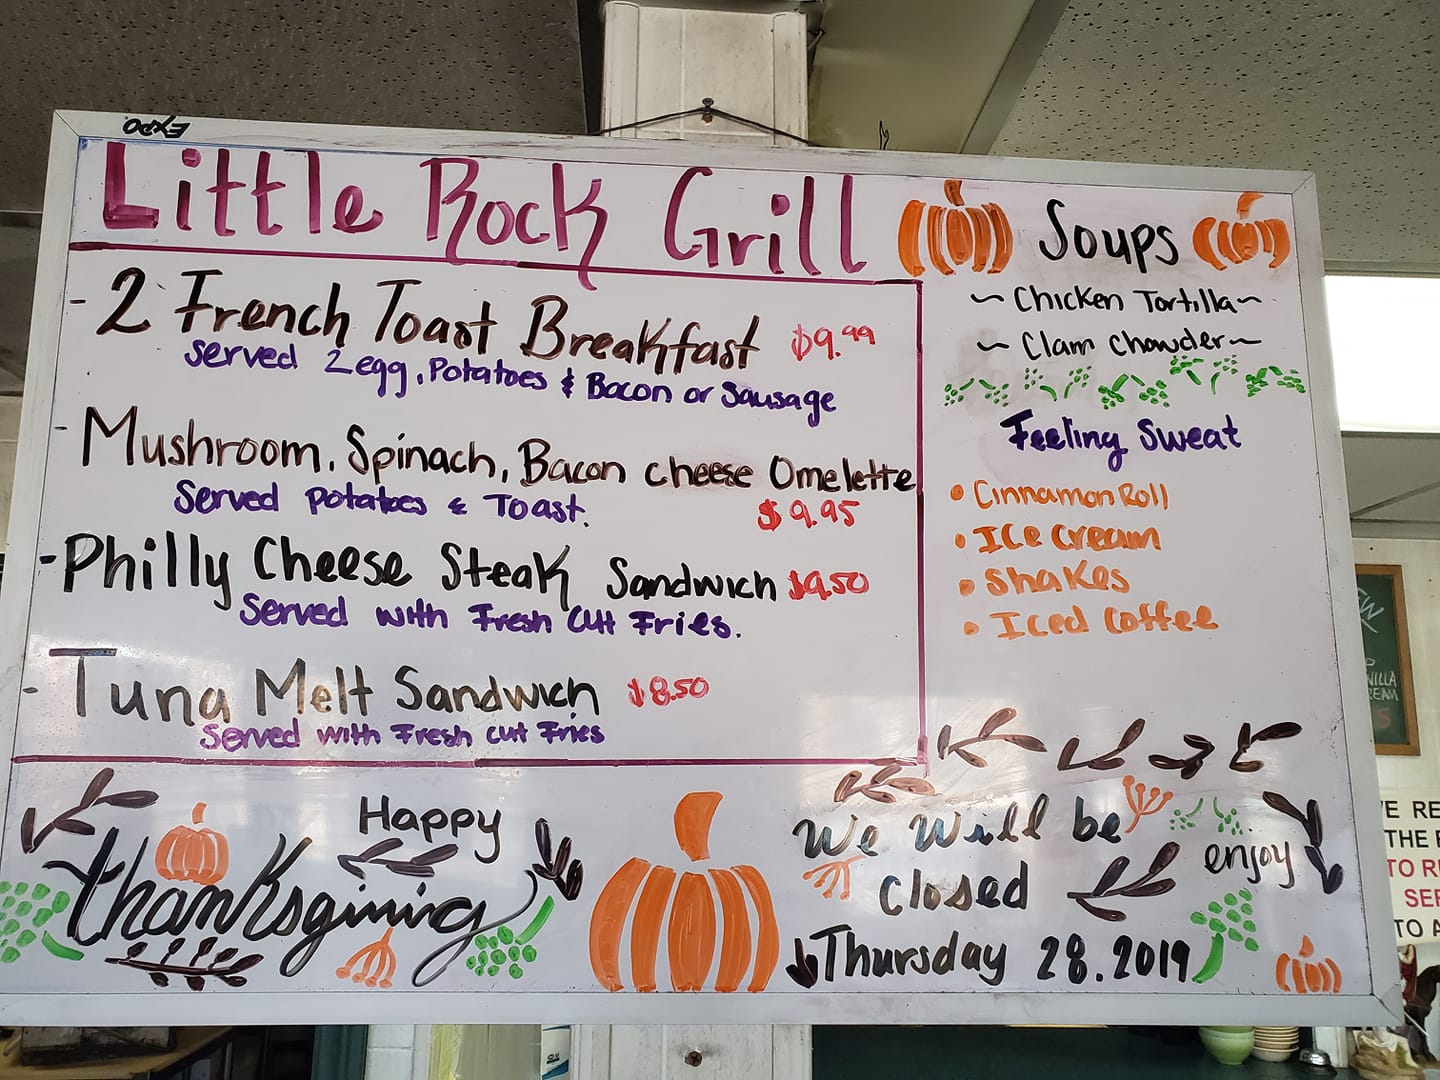 EXPO
Little Rock Grill
- 2 French Toast Breakfast $9.99
served 2 egg, Potatoes & Bacon or Sausage
- Mushroom, Spinach, Bacon cheese Omelette
Served potatoes & Toast. $9.95
- Philly Cheese Steak Sandwich $9.50
Served with Fresh Cut Fries.
- Tuna Melt Sandwich $8.50
Served with Fresh cut Fries
Soups
~ Chicken Tortilla ~
~ Clam Chowder ~
Feeling Sweat
• Cinnamon Roll
• Ice Cream
• Shakes
• Iced Coffee
Happy
thanksgiving
We Will be
closed
enjoy
Thursday 28.2019
THE
TO